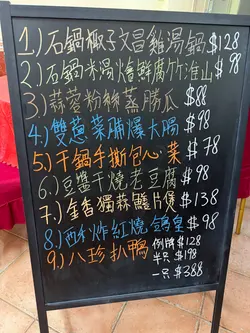 1.) 石鍋椰子文昌雞湯鍋 $128
2.) 石鍋米湯燴鮮腐竹淮山 $98
3.) 蒜蓉粉絲蒸勝瓜 $88
4.) 雙蔥菜脯爆大腸 $98
5.) 干鍋手撕包心菜 $78
6.) 豆醬干燒老豆腐 $98
7.) 金香獨蒜鱔片爆 $138
8.) 酥炸紅燒 $98
9.) 八珍扒鴨 例牌 $128
半只 $198
一只 $388